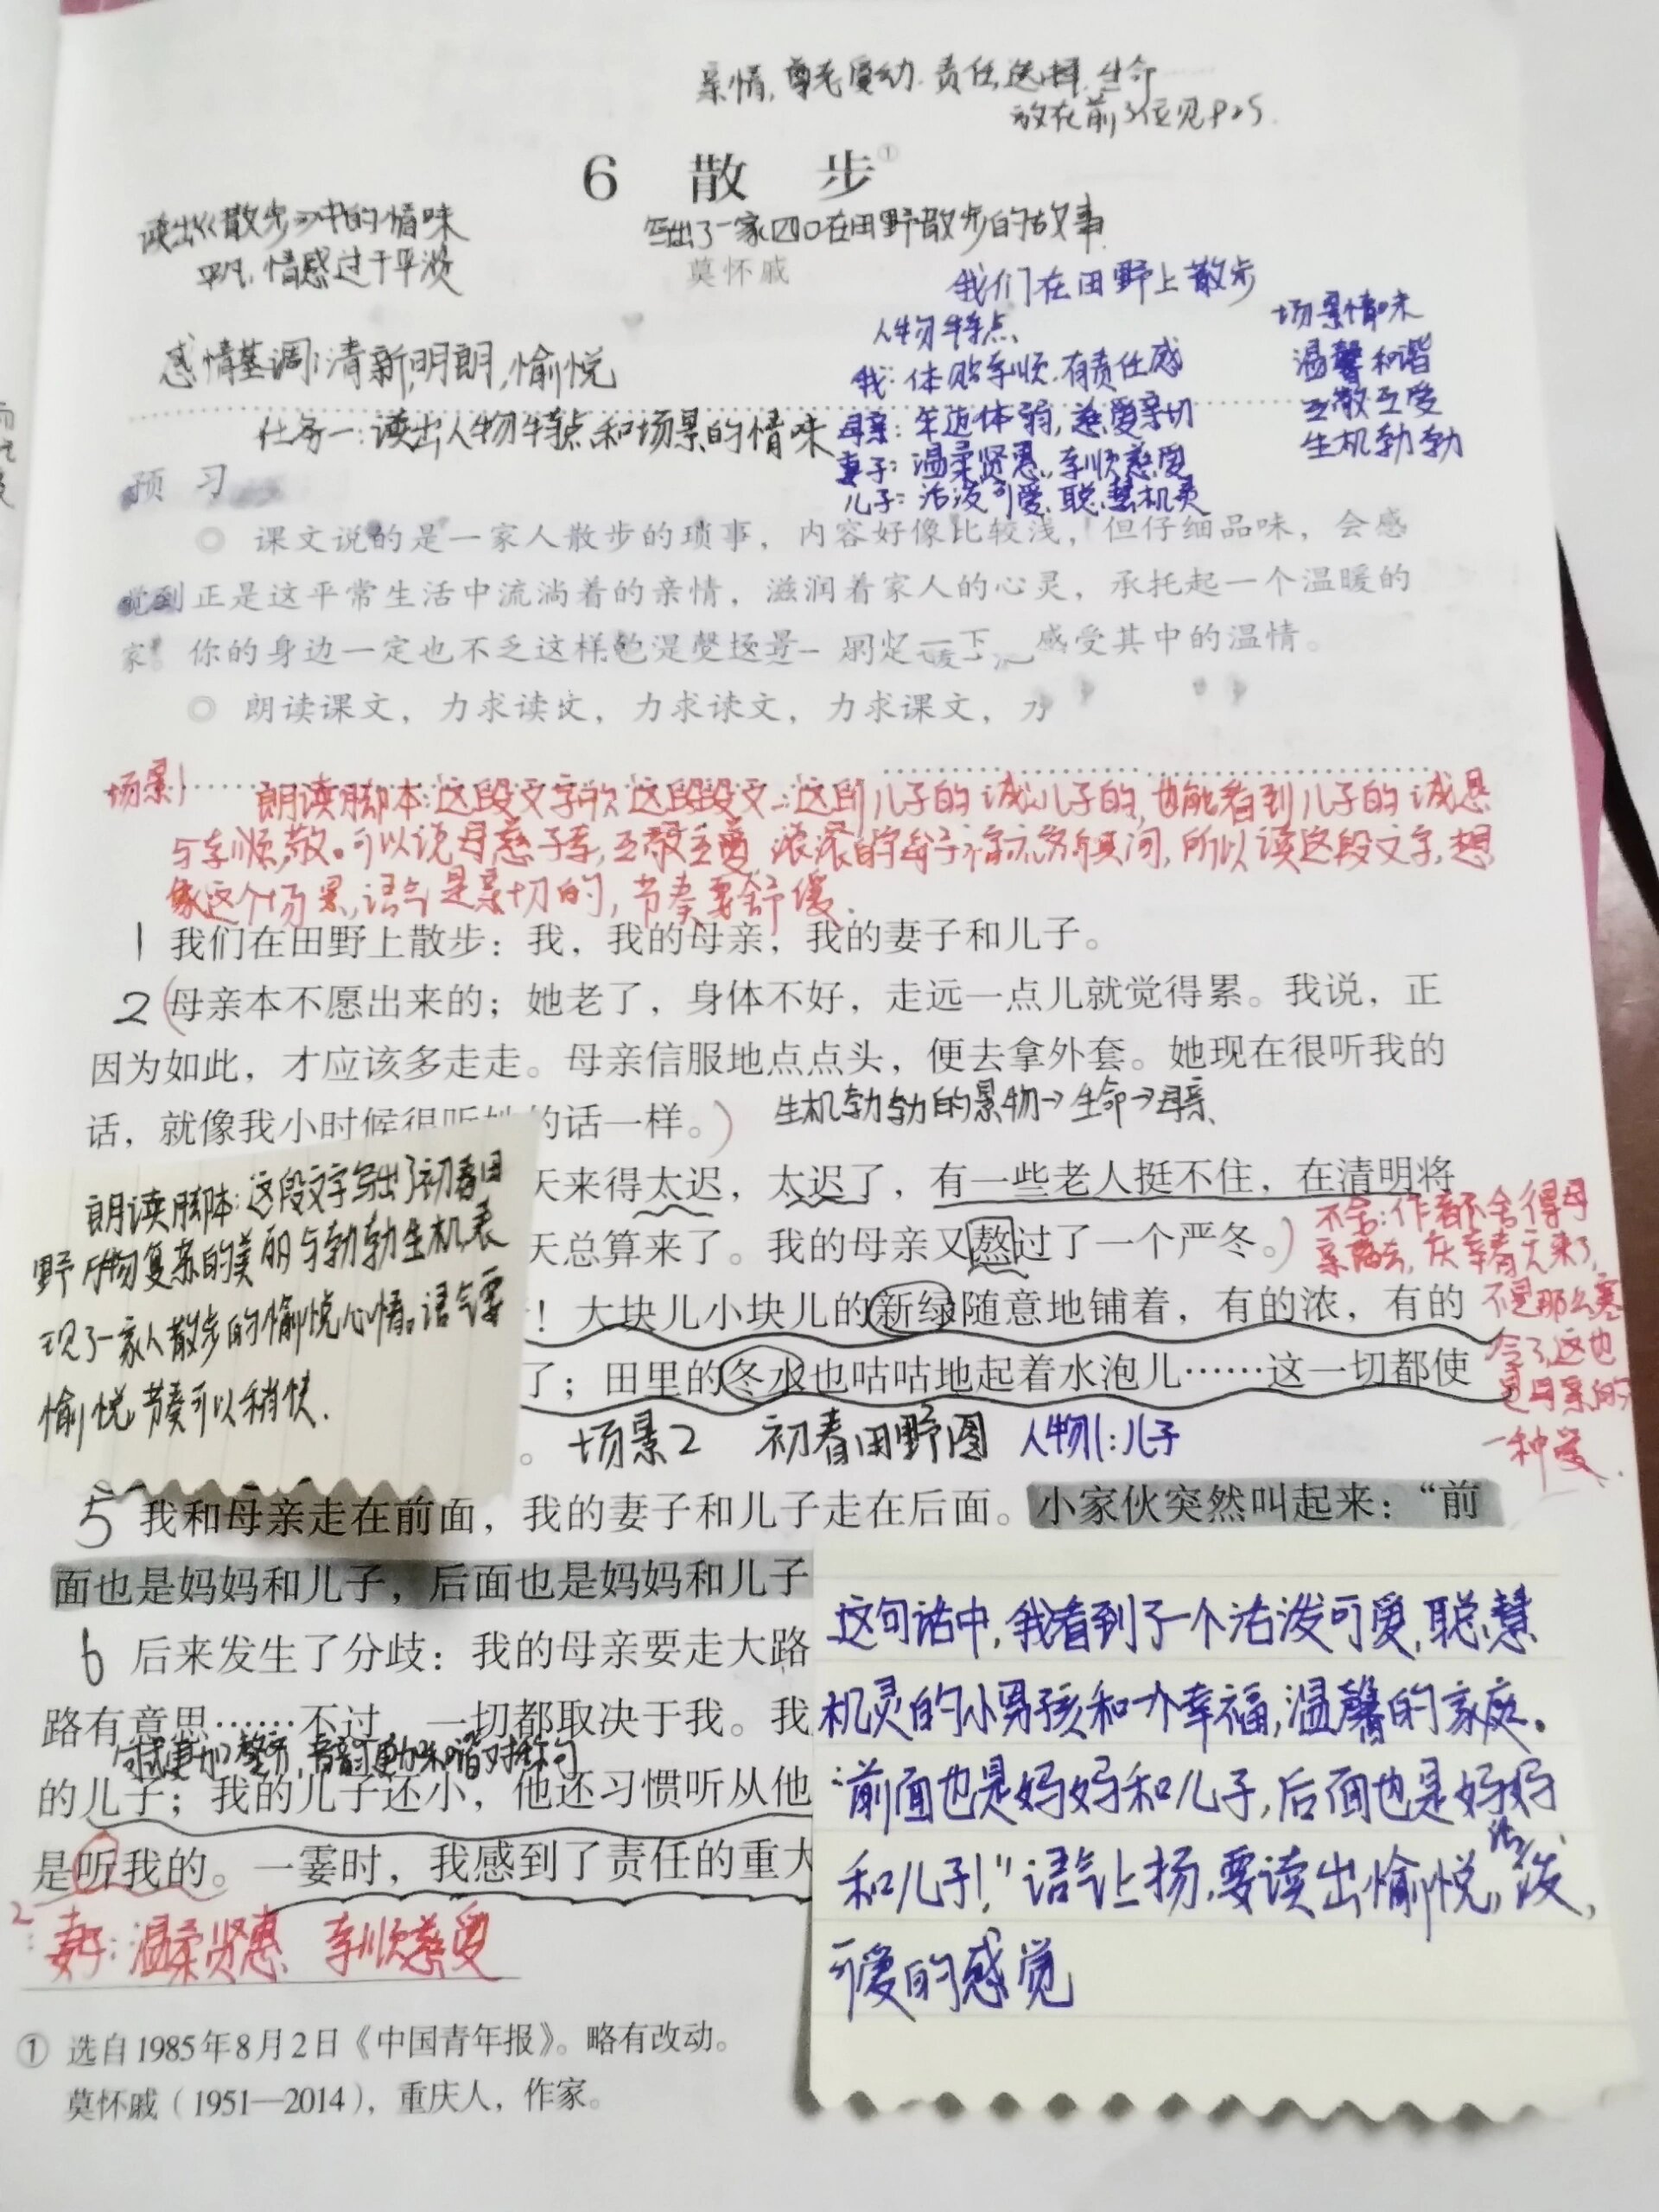 亲情,尊老爱幼.责任,选择.生命……
放在前3位见P25.
6 散 步①
读出《散步》中的情味
平凡,情感过于平淡
写出了一家四口在田野散步的故事
莫怀戚
我们在田野上散步
人物特点
场景情味
感情基调:清新,明朗,愉悦
我:体贴孝顺.有责任感
温馨和谐
任务一:读出人物特点和场景的情味
母亲:年迈体弱,慈爱亲切
互敬互爱
妻子:温柔贤惠,孝顺慈爱
生机勃勃
儿子:活泼可爱.聪慧机灵
预 习
◎ 课文说的是一家人散步的琐事,内容好像比较浅,但仔细品味,会感
觉到正是这平常生活中流淌着的亲情,滋润着家人的心灵,承托起一个温暖的
家。你的身边一定也不乏这样 感受其中的温情。
◎ 朗读课文,力求读文,力求读文,力求课文,力
场景1
朗读脚本:这段文字 儿子的 儿子的,也能看到儿子的
与孝顺,敬。可以说母慈子孝,互敬互爱 浓浓的 所以读这段文字,想
象这个场景,语气是亲切的,节奏要舒缓.
1 我们在田野上散步:我,我的母亲,我的妻子和儿子。
2 (母亲本不愿出来的;她老了,身体不好,走远一点儿就觉得累。我说,正
因为如此,才应该多走走。母亲信服地点点头,便去拿外套。她现在很听我的
话,就像我小时候很听她的话一样。)
生机勃勃的景物→生命→母亲
天来得太迟,太迟了,有一些老人挺不住,在清明将
天总算来了。我的母亲又熬过了一个严冬。)
!大块儿小块儿的新绿随意地铺着,有的浓,有的
了;田里的冬水也咕咕地起着水泡儿……这一切都使
。 场景2 初春田野图 人物1:儿子
朗读脚本:这段文字写出了初春田
野万物复苏的美丽与勃勃生机,表
现了一家人散步的愉悦心情。语气要
愉悦,节奏可以稍快.
不舍:作者不舍得母
亲离去,庆幸春天来了,
不是那么寒
冷了,这也
是母亲的
一种爱.
5 我和母亲走在前面,我的妻子和儿子走在后面。小家伙突然叫起来:“前
面也是妈妈和儿子,后面也是妈妈和儿子
6 后来发生了分歧:我的母亲要走大路
路有意思……不过,一切都取决于我。我
句式更加整齐,音韵更加和谐 对称句
的儿子;我的儿子还小,他还习惯听从他
是听我的。一霎时,我感到了责任的重大
2
妻子:温柔贤惠 孝顺慈爱
这句话中,我看到了一个活泼可爱,聪慧
机灵的小男孩和一个幸福,温馨的家庭。
“前面也是妈妈和儿子,后面也是妈妈
和儿子!”语气上扬,要读出愉悦,活泼,
可爱的感觉
① 选自1985年8月2日《中国青年报》。略有改动。
莫怀戚(1951—2014),重庆人,作家。